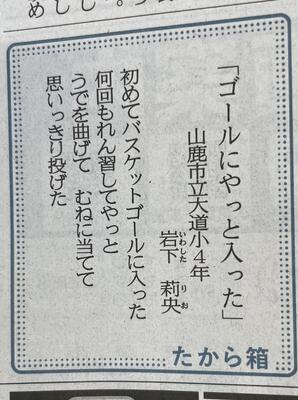 「ゴールにやっと入った」
山鹿市立大道小４年
岩下　莉央
いわした　りお
初めてバスケットゴールに入った
何回もれん習してやっと
うでを曲げて　むねに当てて
思いっきり投げた
たから箱